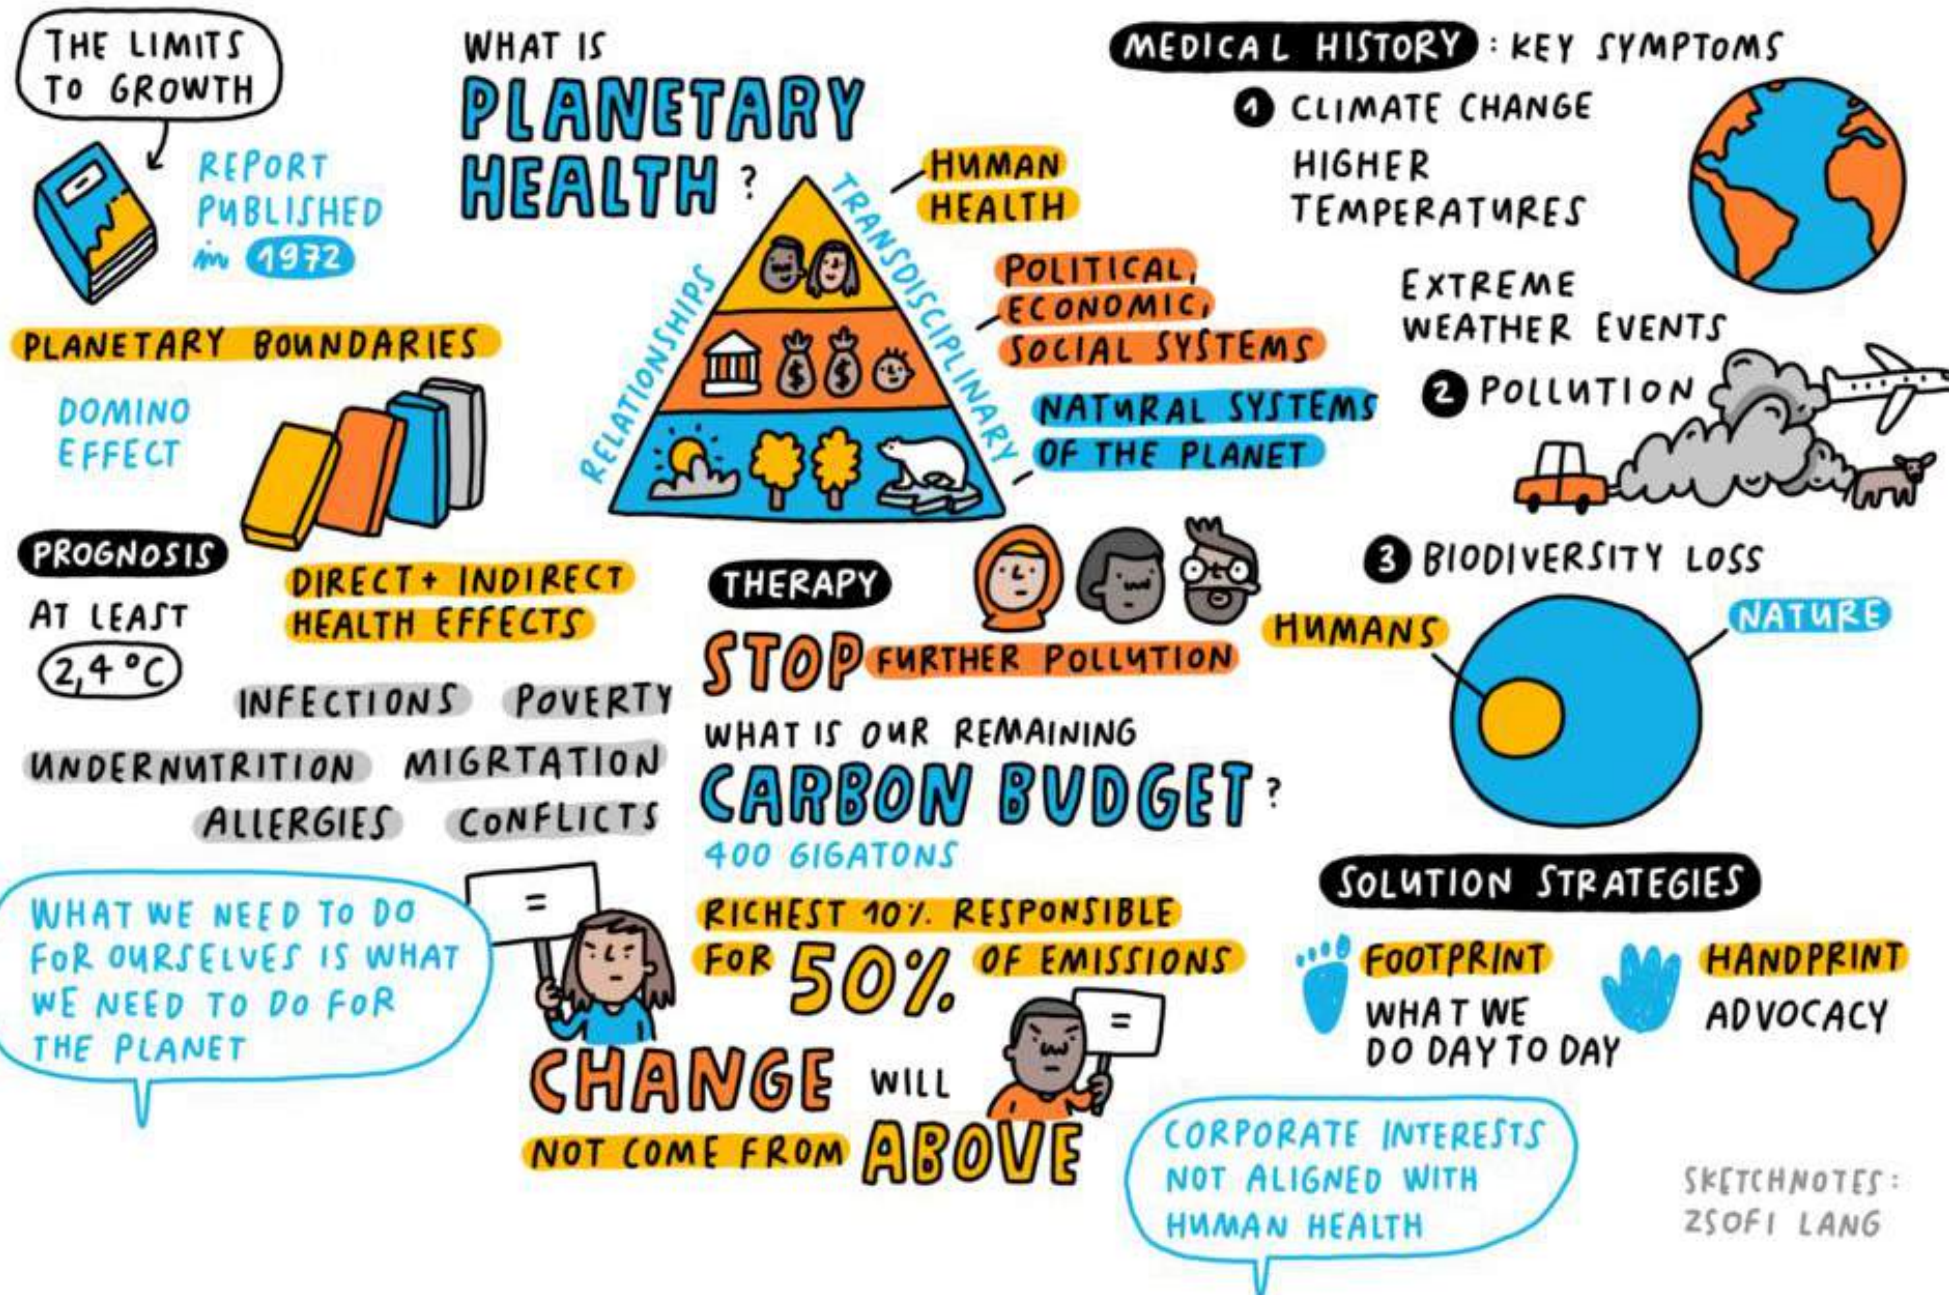 THE LIMITS
TO GROWTH
REPORT
PUBLISHED
in 1972
PLANETARY BOUNDARIES
DOMINO
EFFECT
PROGNOSIS
AT LEAST
2,4 °C
DIRECT + INDIRECT
HEALTH EFFECTS
INFECTIONS POVERTY
UNDERNUTRITION MIGRTATION
ALLERGIES CONFLICTS
WHAT WE NEED TO DO
FOR OURSELVES IS WHAT
WE NEED TO DO FOR
THE PLANET
WHAT IS
PLANETARY
HEALTH ?
RELATIONSHIPS
TRANSDISCIPLINARY
HUMAN
HEALTH
POLITICAL,
ECONOMIC,
SOCIAL SYSTEMS
NATURAL SYSTEMS
OF THE PLANET
$ $
THERAPY
STOP FURTHER POLLUTION
WHAT IS OUR REMAINING
CARBON BUDGET ?
400 GIGATONS
RICHEST 10% RESPONSIBLE
FOR 50% OF EMISSIONS
=
=
CHANGE WILL
NOT COME FROM ABOVE
MEDICAL HISTORY : KEY SYMPTOMS
1 CLIMATE CHANGE
HIGHER
TEMPERATURES
EXTREME
WEATHER EVENTS
2 POLLUTION
3 BIODIVERSITY LOSS
HUMANS
NATURE
SOLUTION STRATEGIES
FOOTPRINT
WHAT WE
DO DAY TO DAY
HANDPRINT
ADVOCACY
CORPORATE INTERESTS
NOT ALIGNED WITH
HUMAN HEALTH
SKETCHNOTES:
ZSOFI LANG